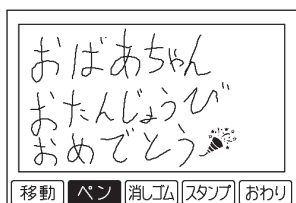 おばあちゃん
おたんじょうび
おめでとう🎉
移動 ペン 消しゴム スタンプ おわり